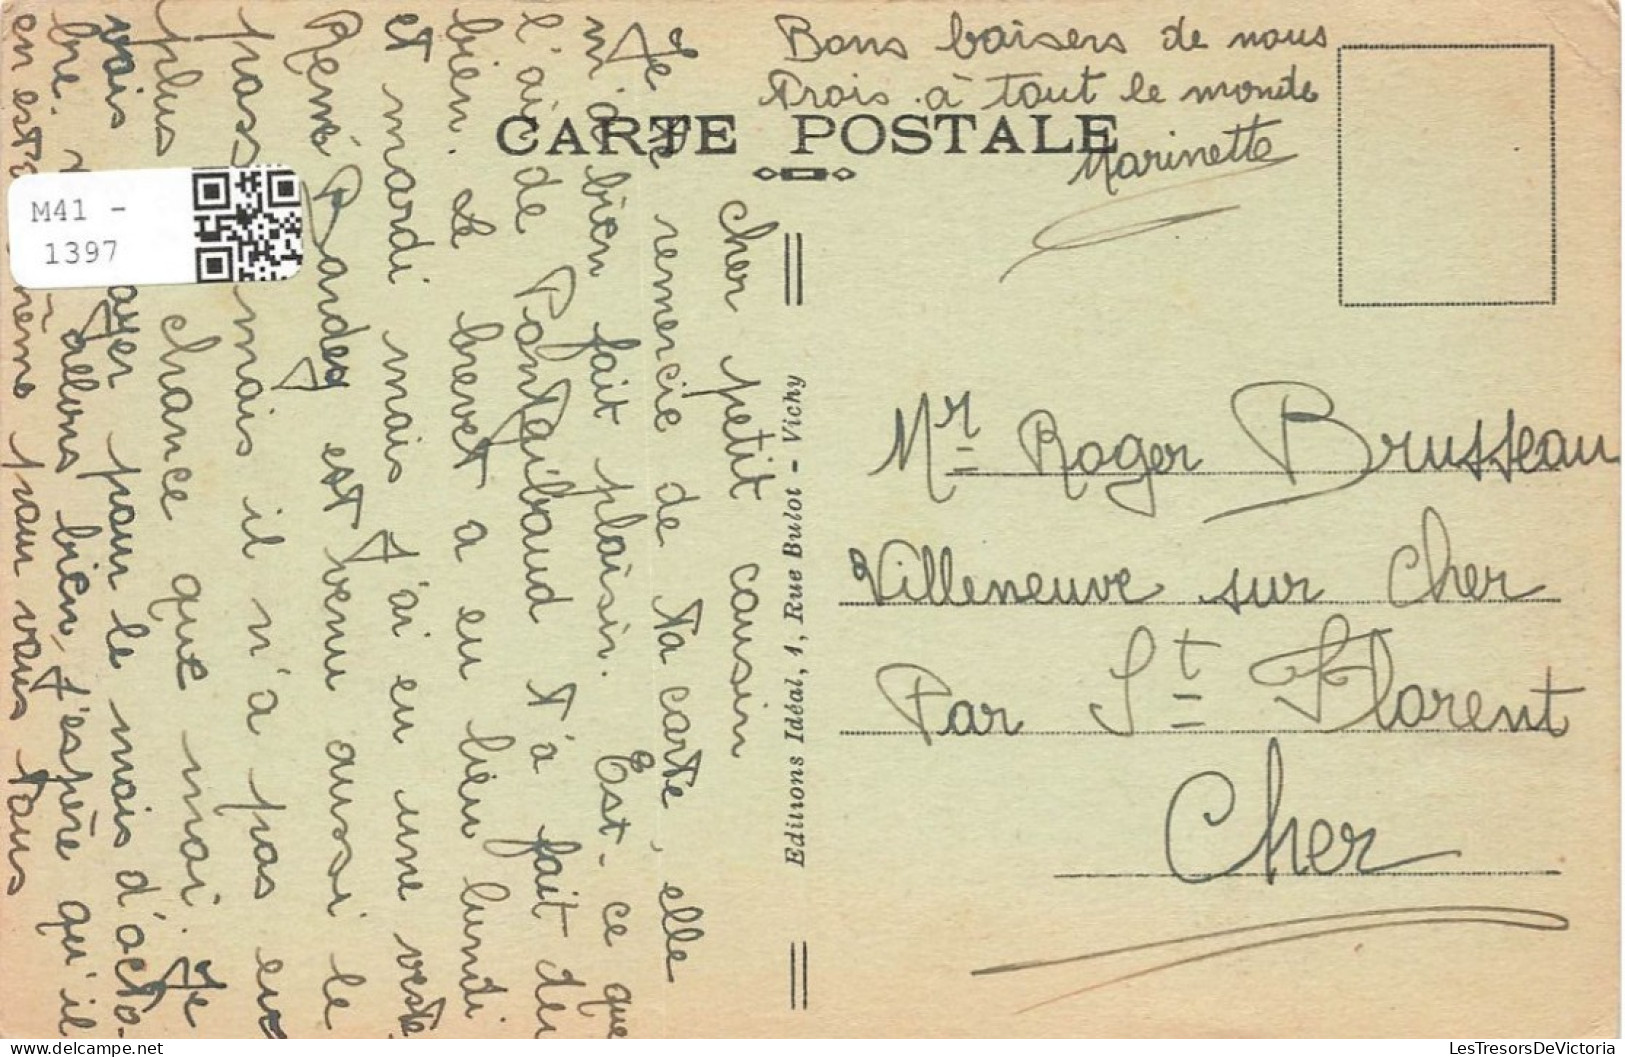 Bons baisers de nous
trois à tout le monde
Marinette
CARTE POSTALE
Cher petit cousin
Je te remercie de ta carte, elle
m'a bien fait plaisir. Est-ce que
l'air de Pontgibaud t'a fait du
bien. Le brevet a eu lieu lundi
et mardi mais j'ai eu une veste
René est venu aussi le
passer mais il n'a pas eu
plus chance que moi. Je
vais pour le mois d'octo-
bre. allons bien, j'espère qu'il
en est même pour vous tous
M41 -
1397
Editions Idéal, 1, Rue Bulot - Vichy
Mr Roger Brusseau
Villeneuve sur Cher
Par St Florent
Cher
LesTresorsDeVictoria.com